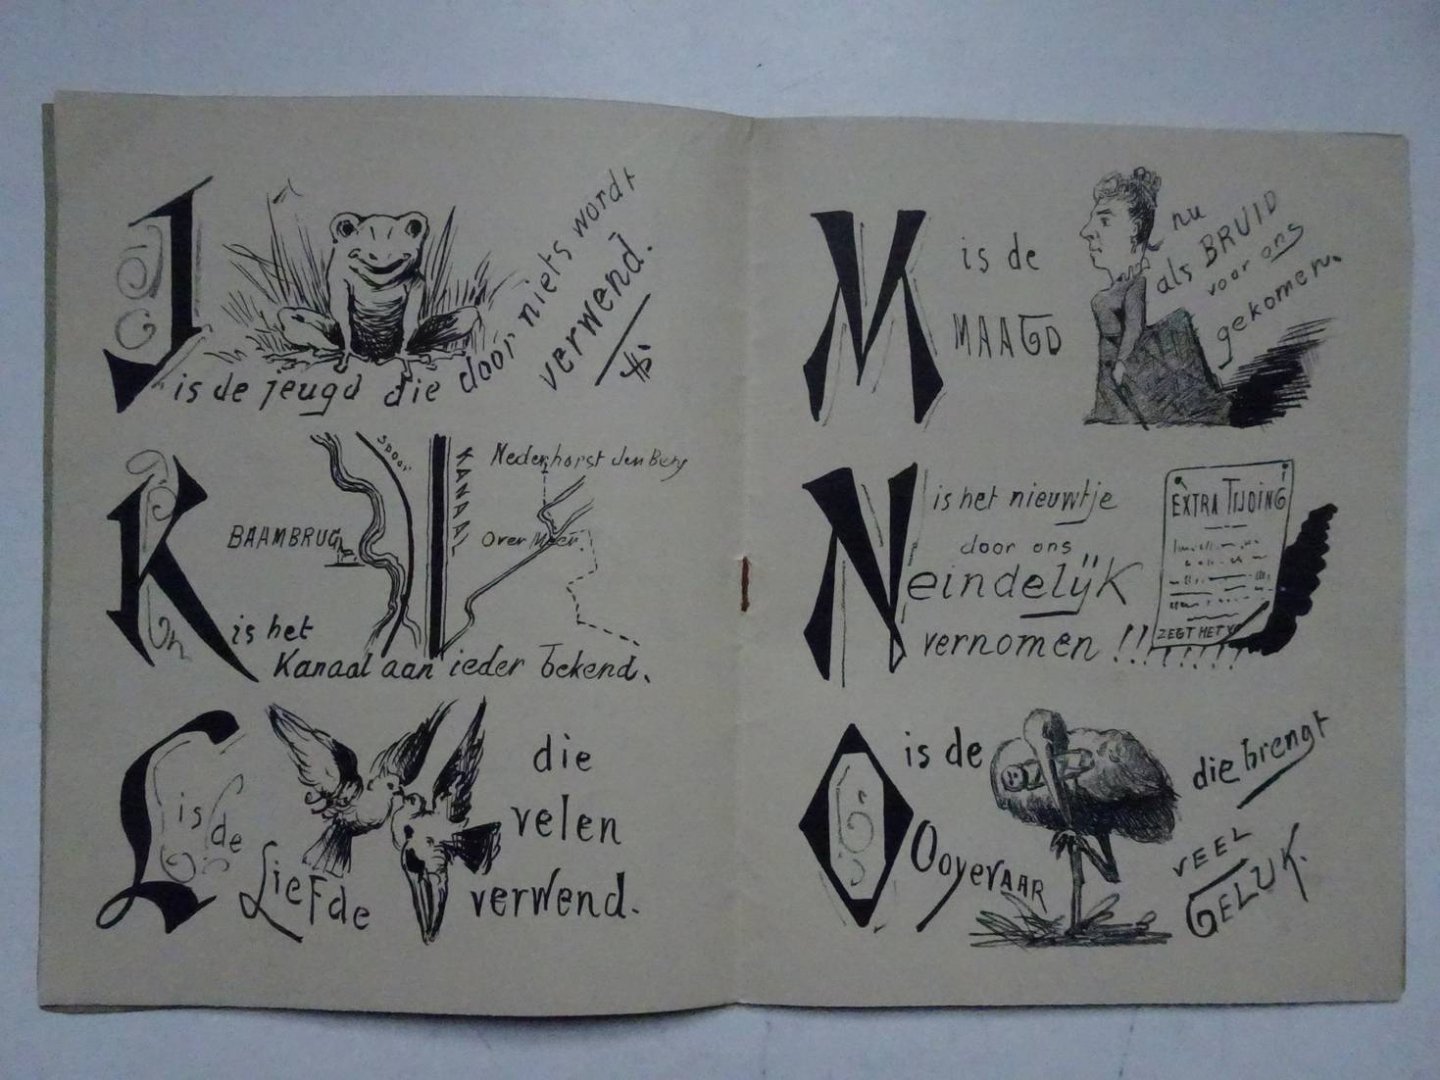 J
is de jeugd die door niets wordt
verwend.
K
BAAMBRUG
SPOOR
KANAAL
Nederhorst den Berg
Over Meer.
is het
Kanaal aan ieder bekend.
L
is de
Liefde
die
velen
verwend.
M
is de
MAAGD
nu
als BRUID
voor ons
gekomen.
N
is het nieuwtje
door ons
eindelijk
vernomen !!!!!!!!!
EXTRA TIJDING
ZEGT HET
O
is de
Ooyevaar
die brengt
VEEL
GELUK.